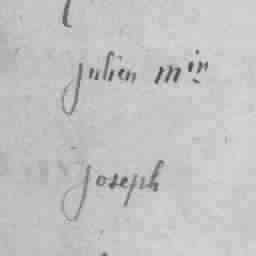 julien m^in
joseph